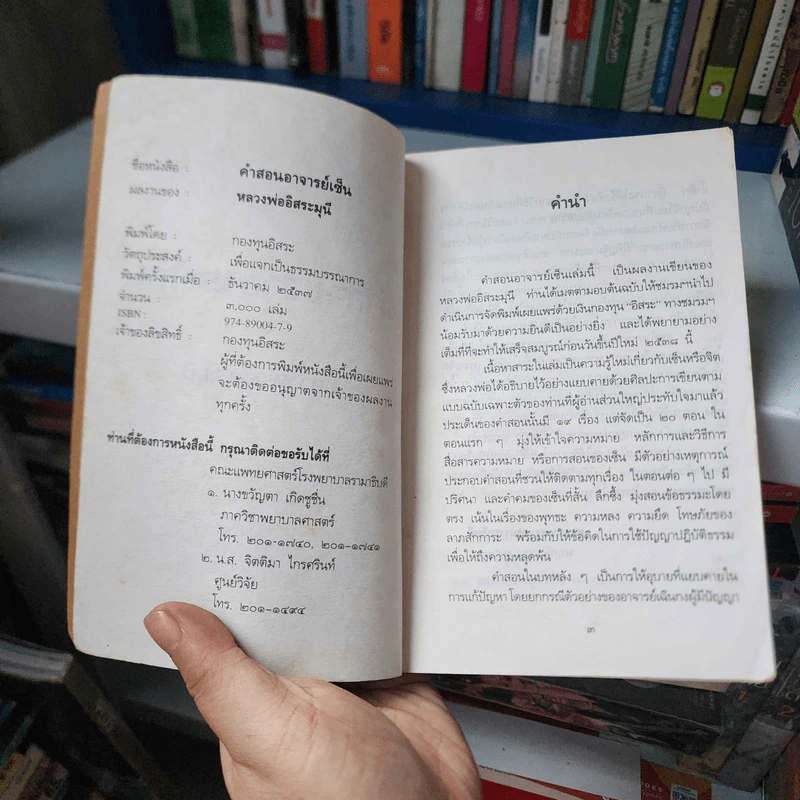 ชื่อหนังสือ : คำสอนอาจารย์เซ็น
ผลงานของ : หลวงพ่ออิสระมุนี
พิมพ์โดย : กองทุนอิสระ
วัตถุประสงค์ : เพื่อแจกเป็นธรรมบรรณาการ
พิมพ์ครั้งแรกเมื่อ : ธันวาคม ๒๕๓๗
จำนวน : ๓,๐๐๐ เล่ม
ISBN : 974-89004-7-9
เจ้าของลิขสิทธิ์ : กองทุนอิสระ
ผู้ที่ต้องการพิมพ์หนังสือนี้เพื่อเผยแพร่
จะต้องขออนุญาตจากเจ้าของผลงาน
ทุกครั้ง
ท่านที่ต้องการหนังสือนี้ กรุณาติดต่อขอรับได้ที่
คณะแพทยศาสตร์โรงพยาบาลรามาธิบดี
๑. นางขวัญตา เกิดชูชื่น
ภาควิชาพยาบาลศาสตร์
โทร. ๒๐๑-๑๗๔๐, ๒๐๑-๑๗๔๑
๒. น.ส. จิตติมา ไกรศรินท์
ศูนย์วิจัย
โทร. ๒๐๑-๑๔๙๔
คำนำ
คำสอนอาจารย์เซ็นเล่มนี้ เป็นผลงานเขียนของ
หลวงพ่ออิสระมุนี ท่านได้เมตตามอบต้นฉบับให้ชมรมฯนำไป
ดำเนินการจัดพิมพ์เผยแพร่ด้วยเงินกองทุน "อิสระ" ทางชมรมฯ
น้อมรับมาด้วยความยินดีเป็นอย่างยิ่ง และได้พยายามอย่าง
เต็มที่ที่จะทำให้เสร็จสมบูรณ์ก่อนวันขึ้นปีใหม่ ๒๕๓๘ นี้
เนื้อหาสาระในเล่มเป็นความรู้ใหม่เกี่ยวกับเซ็นหรือจิต
ซึ่งหลวงพ่อได้อธิบายไว้อย่างแยบคายด้วยศิลปะการเขียนตาม
แบบฉบับเฉพาะตัวของท่านที่ผู้อ่านส่วนใหญ่ประทับใจมาแล้ว
ประเด็นของคำสอนนั้นมี ๑๙ เรื่อง แต่จัดเป็น ๒๐ ตอน ใน
ตอนแรก ๆ มุ่งให้เข้าใจความหมาย หลักการและวิธีการ
สื่อสารความหมาย หรือการสอนของเซ็น มีตัวอย่างเหตุการณ์
ประกอบคำสอนที่ชวนให้ติดตามทุกเรื่อง ในตอนต่อ ๆ ไป มี
ปริศนา และคำคมของเซ็นที่สั้น ลึกซึ้ง มุ่งสอนข้อธรรมะโดย
ตรง เน้นในเรื่องของพุทธะ ความหลง ความยึด โทษภัยของ
ลาภสักการะ พร้อมกับให้ข้อคิดในการใช้ปัญญาปฏิบัติธรรม
เพื่อให้ถึงความหลุดพ้น
คำสอนในบทหลัง ๆ เป็นการให้อุบายที่แยบคายใน
การแก้ปัญหา โดยยกกรณีตัวอย่างของอาจารย์เฉินกงผู้มีปัญญา
๓